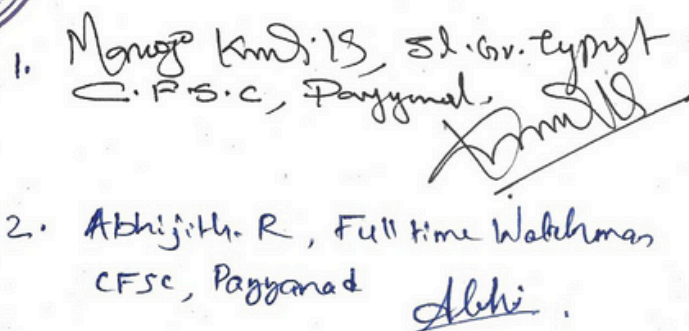 1. Manoj Kumar. S, Sl. Gr. Typist
C.F.S.C, Payyanad.
2. Abhijith. R, Full time Watchman
CFSC, Payyanad
Abhi.